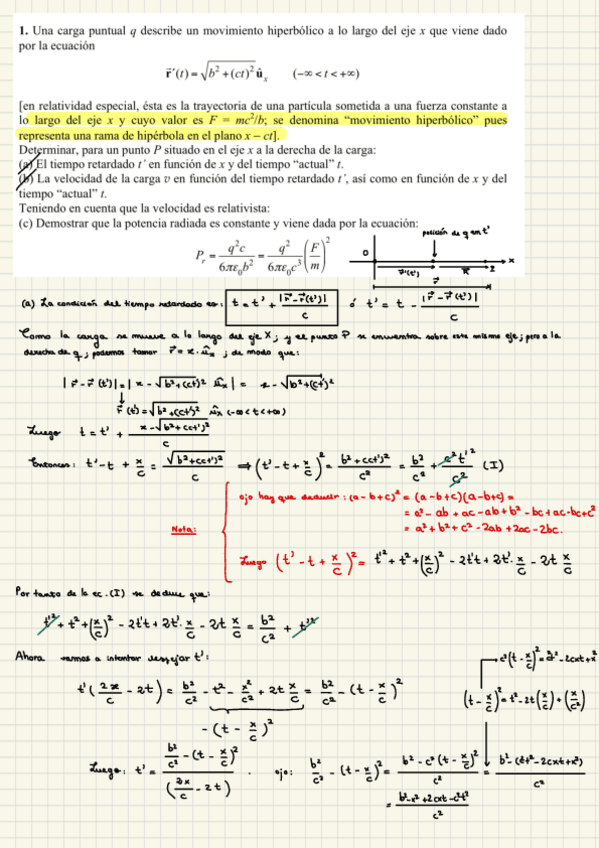 1. Una carga puntual q describe un movimiento hiperbólico a lo largo del eje x que viene dado
por la ecuación
r⃗´(t) = √(b² + (ct)²) û_x (−∞ < t < +∞)
[en relatividad especial, ésta es la trayectoria de una partícula sometida a una fuerza constante a
lo largo del eje x y cuyo valor es F = mc²/b; se denomina “movimiento hiperbólico” pues
representa una rama de hipérbola en el plano x − ct].
Determinar, para un punto P situado en el eje x a la derecha de la carga:
(a) El tiempo retardado t´ en función de x y del tiempo “actual” t.
(b) La velocidad de la carga v en función del tiempo retardado t´, así como en función de x y del
tiempo “actual” t.
Teniendo en cuenta que la velocidad es relativista:
(c) Demostrar que la potencia radiada es constante y viene dada por la ecuación:
posición de q en t'
P_r = q²c / 6πε₀b² = q² / 6πε₀c³ (F/m)²
0 r⃗'(t') R⃗ x
r⃗
(a) La condición del tiempo retardado es: t = t' + |r⃗ − r⃗'(t')| / c ó t' = t − |r⃗ − r⃗'(t')| / c
Como la carga se mueve a lo largo del eje X; y el punto P se encuentra sobre este mismo eje; pero a la
derecha de q; podemos tomar r⃗ = x · û_x ; de modo que:
|r⃗ − r⃗'(t')| = |x − √(b² + (ct')² û_x| = x − √(b² + (ct')²)
r⃗'(t) = √(b² + (ct')²) û_x (−∞ < t < +∞)
Luego t = t' + (x − √(b² + (ct')²)) / c
Entonces: t' − t + x/c = √(b² + (ct')²) / c ⇒ (t' − t + x/c)² = (b² + (ct')²) / c² = b²/c² + c²t'²/c² (I)
ojo hay que deducir: (a−b+c)² = (a−b+c)(a−b+c) =
= a² − ab + ac − ab + b² − bc + ac − bc + c²
= a² + b² + c² − 2ab + 2ac − 2bc.
Nota:
Luego (t' − t + x/c)² = t'² + t² + (x/c)² − 2t't + 2t' · x/c − 2t x/c
Por tanto de la ec. (I) se deduce que:
t'² + t² + (x/c)² − 2t't + 2t' · x/c − 2t x/c = b²/c² + t'²
Ahora vamos a intentar despejar t':
c²(t − x/c)² = c²t² − 2cxt + x²
t'(2x/c − 2t) = b²/c² − t² − x²/c² + 2t x/c = b²/c² − (t − x/c)²
(t − x/c)² = t² − 2t(x/c) + (x²/c²)
− (t − x/c)²
Luego: t' = (b²/c² − (t − x/c)²) / (2x/c − 2t) . ojo: b²/c² − (t − x/c)² = (b² − c²(t − x/c)²) / c² = (b² − (c²t² − 2cxt + x²)) / c²
= (b² − x² + 2cxt − c²t²) / c²